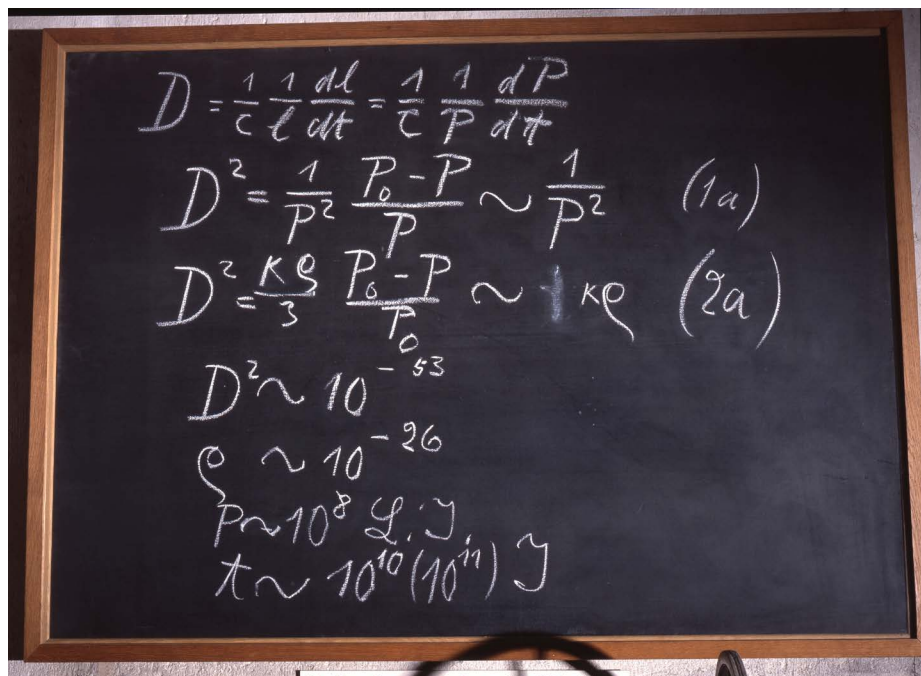 D = 1/c 1/l dl/dt = 1/c 1/P dP/dt
D² = 1/P² (P₀ - P)/P ~ 1/P² (1a)
D² = κρ/3 (P₀ - P)/P₀ ~ κρ (2a)
D² ~ 10⁻⁵³
ρ ~ 10⁻²⁶
P ~ 10⁸ L.J.
t ~ 10¹⁰ (10¹¹) J